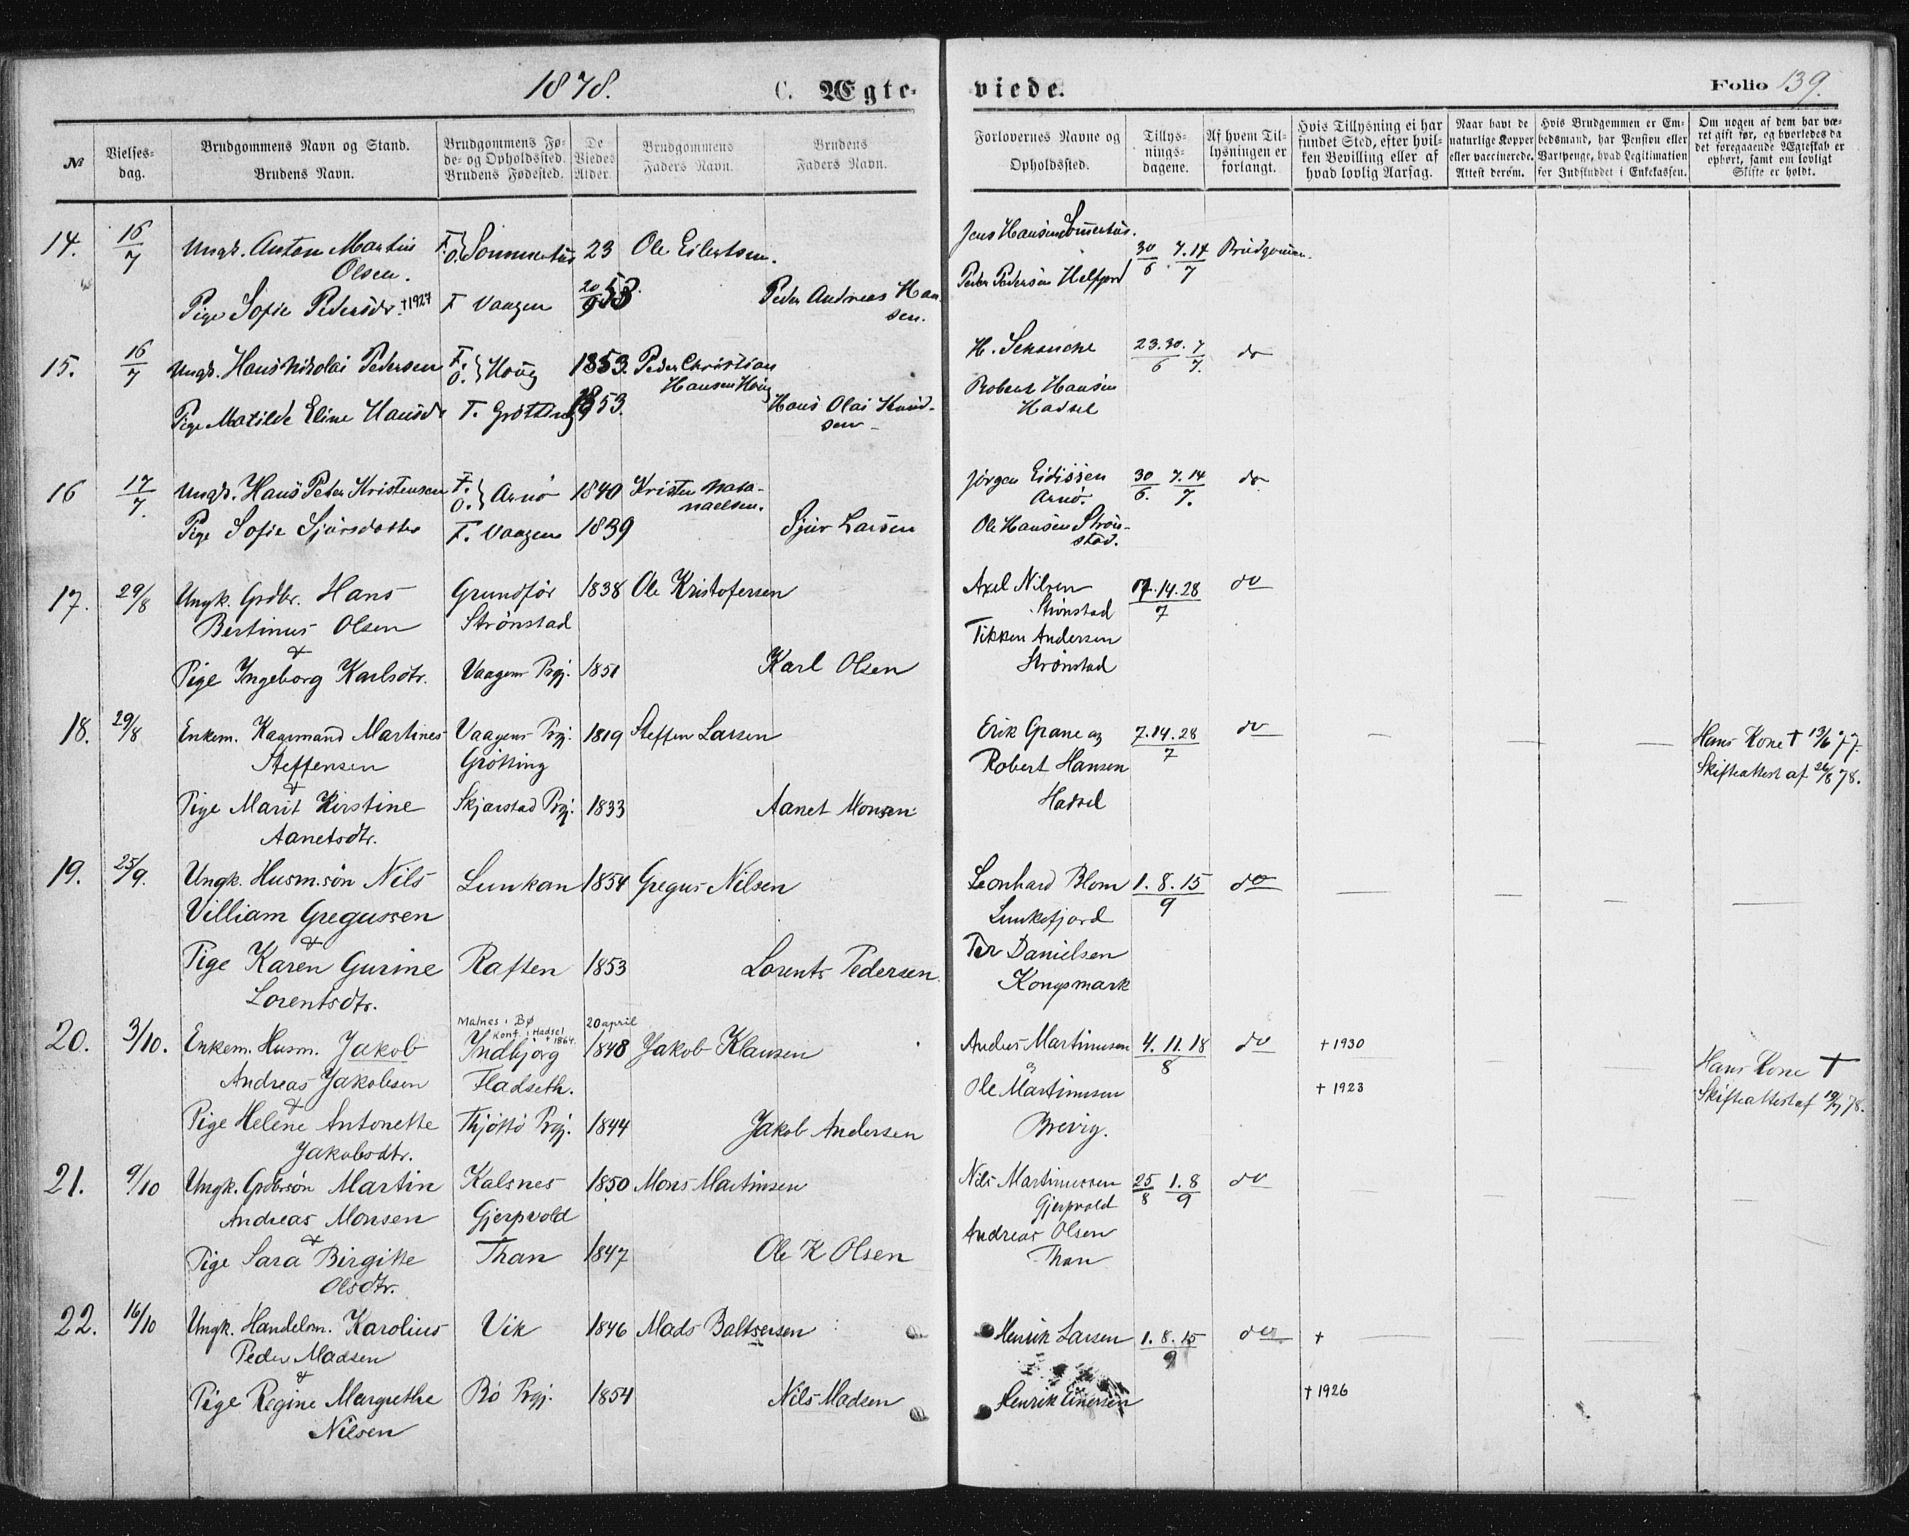 1878.
C. Ægte-
viede.
Folio 139.
№
Vielses-
dag.
Brudgommens Navn og Stand.
Brudens Navn.
Brudgommens Fø-
de- og Opholdssted.
Brudens Fødested.
De
Viedes
Alder.
Brudgommens
Faders Navn.
Brudens
Faders Navn.
Forlovernes Navne og
Opholdssted.
Tillys-
nings-
dagene.
Af hvem Til-
lysningen er
forlangt.
Hvis Tillysning ei har
fundet Sted, efter hvil-
ken Bevilling eller af
hvad lovlig Aarsag.
Naar havt de
naturlige Kopper
eller vaccinerede.
Attest derom.
Hvis Brudgommen er Em-
bedsmand, har Pension eller
Vartpenge, hvad Legitimation
for Indskuddet i Enkekassen.
Om nogen af dem har væ-
ret gift før, og hvorledes da
det foregaaende Ægteskab er
ophørt, samt om lovligt
Skifte er holdt.
14. 16/7 Ungk. Anton Martin F. O. 23 Ole Eilertsen. Jens Hansen 30/6 7.14/7
Olsen.
Pige Sofie Pedersdr. †1927 F Vaagen 20/9 53 Peder Andreas Han- Peder Pedersen
sen.
15. 16/7 Ungk. Hans Nikolai Pedersen F. O. 1853. Peder Christian 23.30./6 7/7. do
Hansen
Robert Hansen
Pige Matilde Eline Hansdr F. Grøtting 1853. Hans Olai Knud- Hadsel
sen
16 17/7. Ungk. Hans Peter Kristensen F. O. Arnø 1840 Kristen Nata- Jørgen Eidissen 30/6. 7.14/7. do
naelsen. Arnø.
Pige Sofie Sjursdatter F. Vaagen 1839 Sjur Larsen Ole Hansen Strøn-
stad.
17. 29/8 Ungk. Grdbr. Hans Grundfør 1838 Ole Kristofersen Axel Nilsen 07.14.28/7 do
Bertinus Olsen Strønstad Strønstad
& Tikken Andersen
Pige Ingeborg Karlsdtr. Vaagens Prgj. 1851 Karl Olsen Strønstad
18. 29/8 Enkem. Kagemand Martines Vaagens Prgj. 1819 Steffen Larsen Erik Grane og 7.14.28/7 do — — — Hans Kone † 13/6 77.
Steffensen Grötting Robert Hansen Skifteattest af 26/8 78.
&
Pige Marit Kirstine Skjærstad Prgj. 1833 Aanet Monsen Hadsel
Aanetsdtr.
19. 25/9. Ungk. Husm.søn Nils Lunkan 1854 Gregus Nilsen Leonhard Blom 1.8.15/9 do — — —
Villiam Gregussen Lunkefjord
&
Pige Karen Gurine Raften 1853 Lorents Pedersen. Per Danielsen
Lorentsdtr. Kongsmark
Malnes i Bø 20 april
Konf. i Hadsel 1864.
20. 3/10. Enkem. Husm. Jakob Indbjörg 1848 Jakob Klausen Anders Martinusen 4.11.18/8 do † 1930 Hans Kone †
Andreas Jakobsen Fladseth. Ole Martinusen † 1923 Skifteattest af 19/7 78.
&
Pige Helene Antonette Thjöttö Prgj. 1844 Jakob Andersen Brevig.
Jakobsdtr.
21. 9/10 Ungk. Grdbrsön Martin Kalsnes 1850 Mons Martinsen Nils Martinussen 25/8 1.8/9 do — — — —
Andreas Monsen Gjerpvold Gjerpvold
&
Pige Sara Birgitte Than 1847 Ole K Olsen Andreas Olsen
Olsdtr. Than
22. 16/10 Ungk. Handelsm. Karolius Vik 1846 Mads Baltsersen Henrik Larsen 1.8.15/9 do †
Peder Madsen
&
Pige Regine Margrethe Bö Prgj. 1854 Nils Madsen Henrik Einersen † 1926
Nilsen